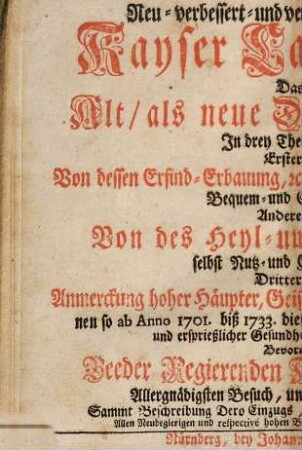 Neu-verbessert-und ve
Kayser Ca
Das
Alt/als neue
In drey The
Erster
Von dessen Erfind-Erbauung, ꝛc
Bequem-und
Andere
Von des Heyl-un
selbst Nutz-und
Dritter
Anmerckung hoher Häupter, Geis
nen so ab Anno 1701. biß 1733. die
und ersprießlicher Gesundhe
Bevor
Beeder Regierenden
Allergnädigsten Besuch, un
Sammt Beschreibung Dero Einzugs
Allen Neubegierigen und respectivè hohen B
Nürnberg, bey Johann